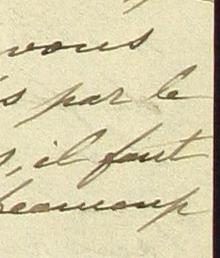 vous
s par le
s, il faut
beaucoup